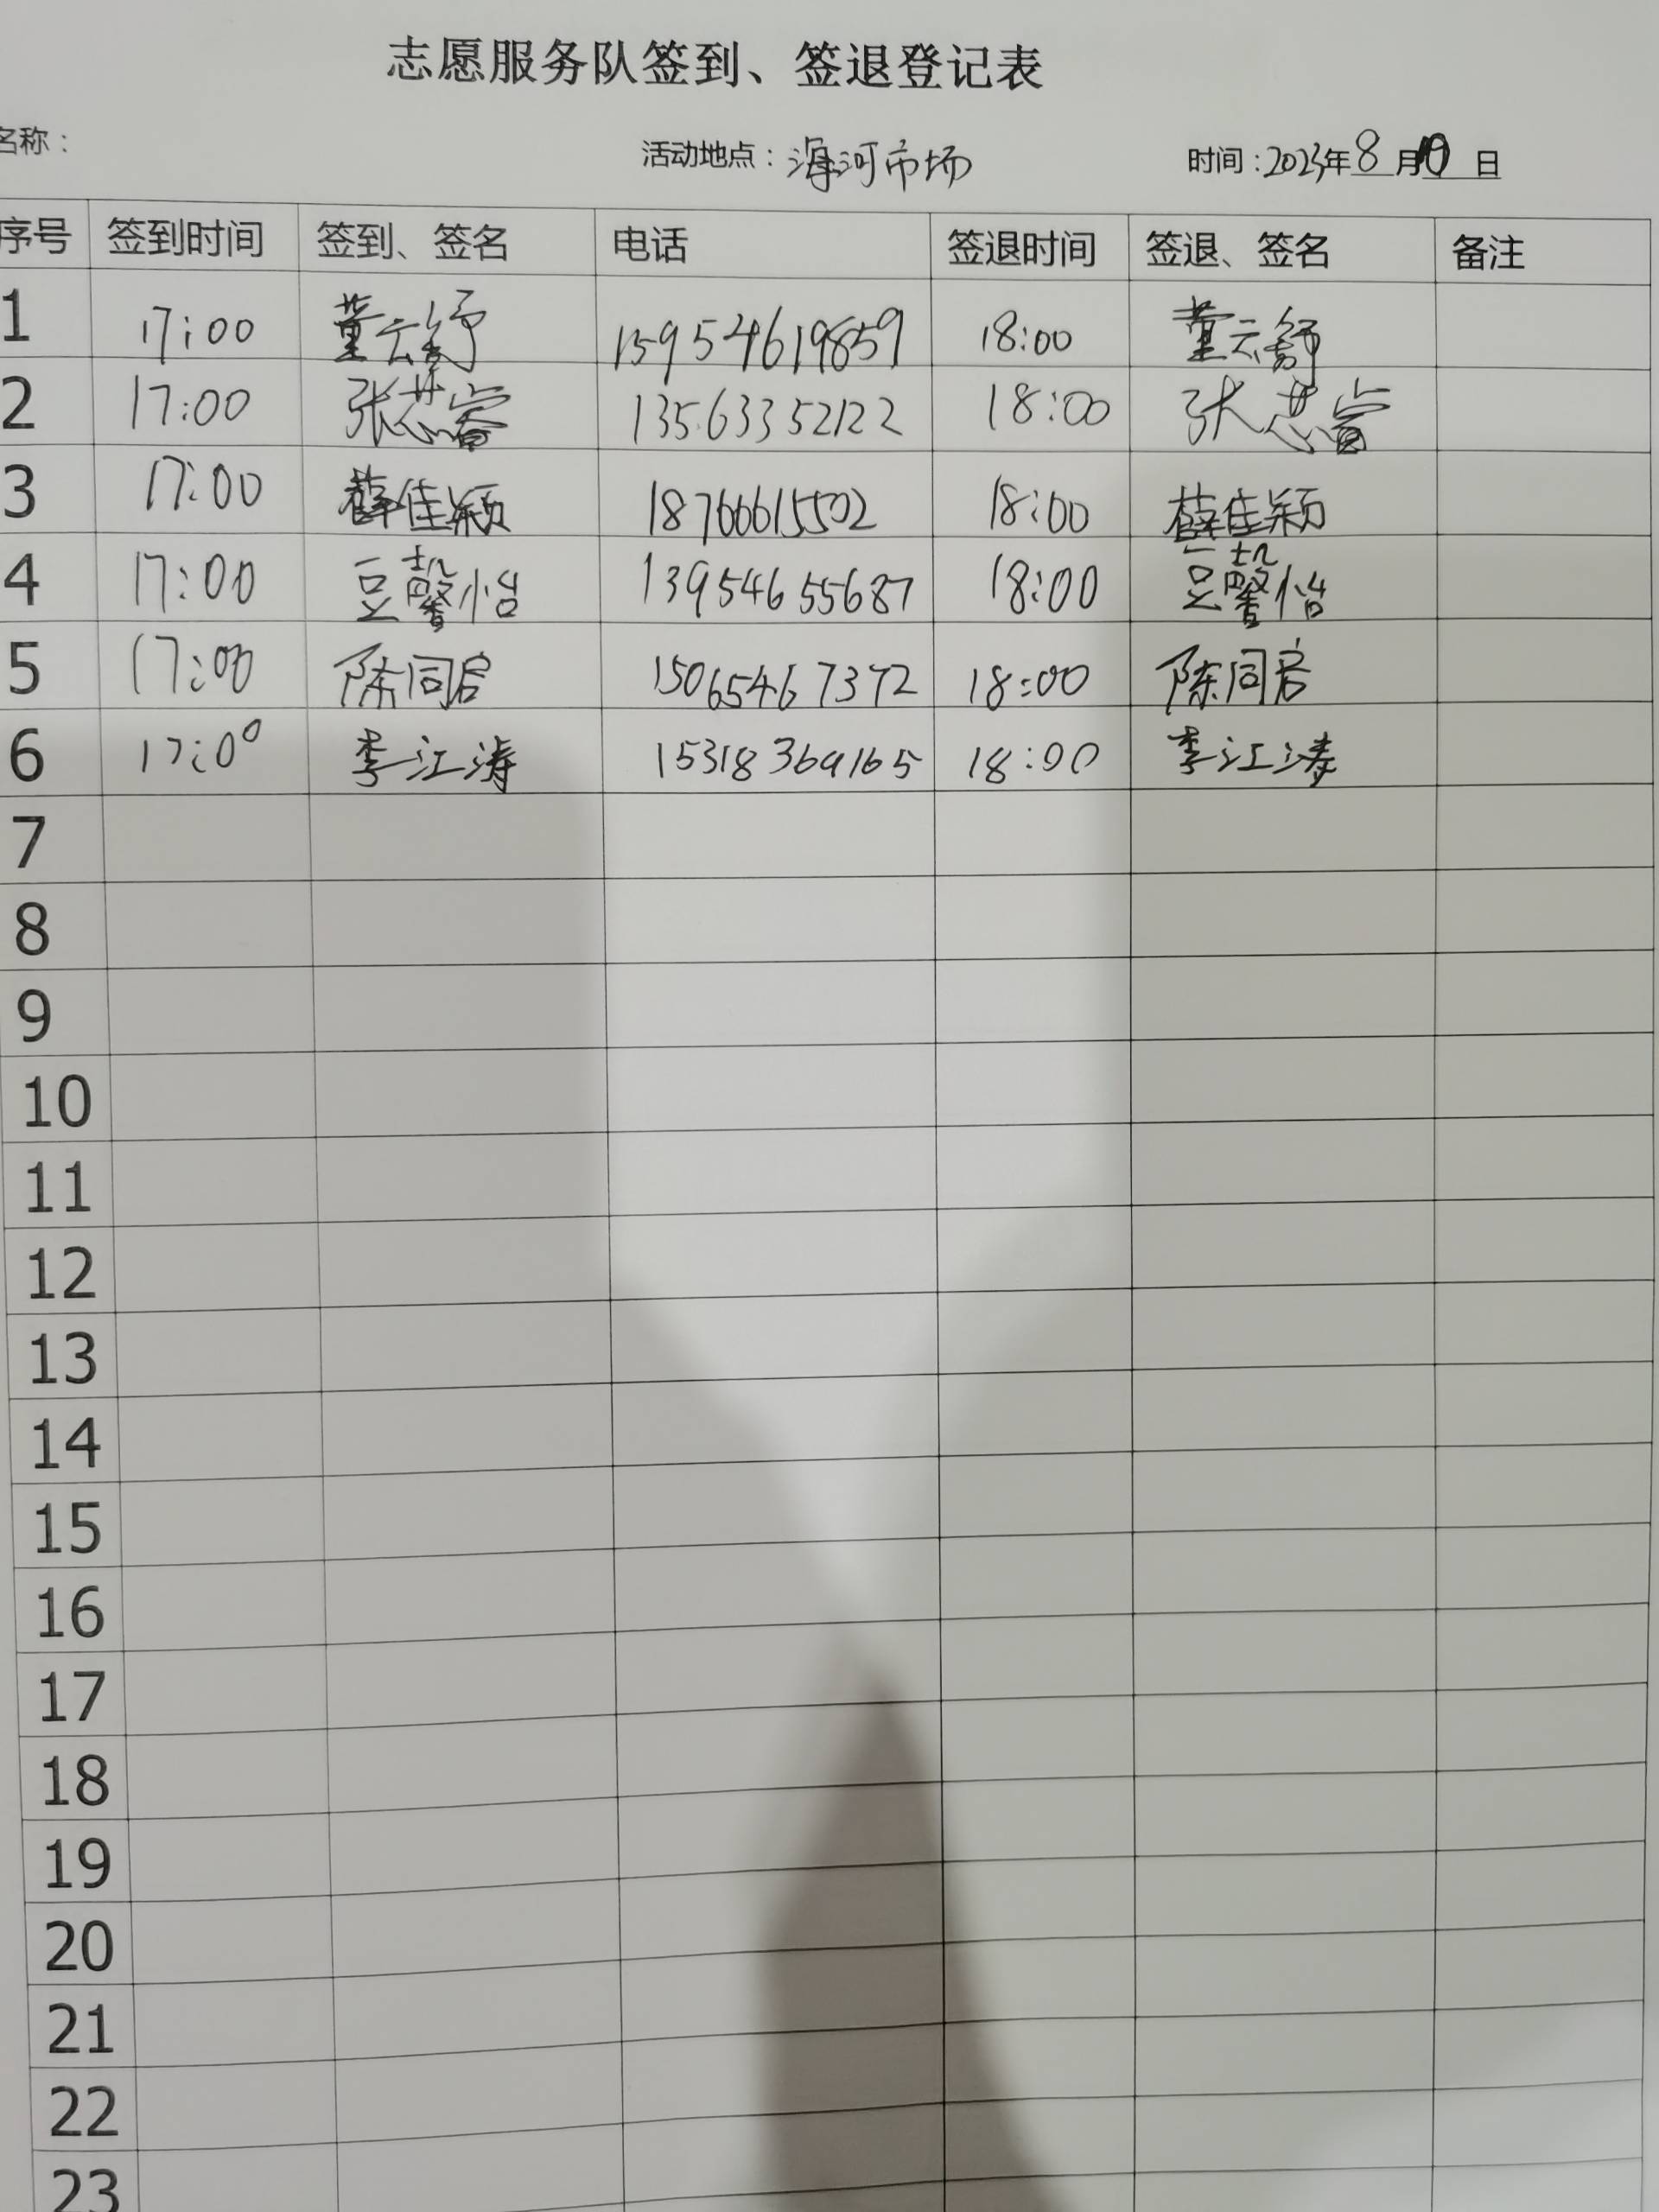 志愿服务队签到、签退登记表
名称： 活动地点：海河市场 时间：2023年8月10日
序号 签到时间 签到、签名 电话 签退时间 签退、签名 备注
1 17:00 董云舒 15954619859 18:00 董云舒
2 17:00 张芸睿 13563352122 18:00 张芸睿
3 17:00 薛佳颖 18766615502 18:00 薛佳颖
4 17:00 豆馨怡 13954655687 18:00 豆馨怡
5 17:00 陈同启 15065467372 18:00 陈同启
6 17:00 李江涛 15318369165 18:00 李江涛
7
8
9
10
11
12
13
14
15
16
17
18
19
20
21
22
23